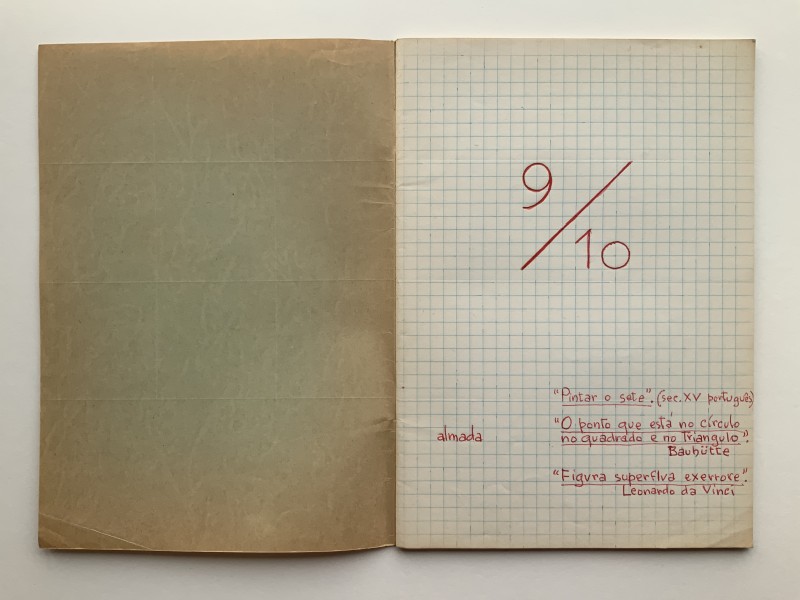 9/10
"Pintar o sete". (sec. XV português)
"O ponto que está no círculo
no quadrado e no Triangulo".
Bauhütte
almada
"Figvra svperflva exerrore".
Leonardo da Vinci